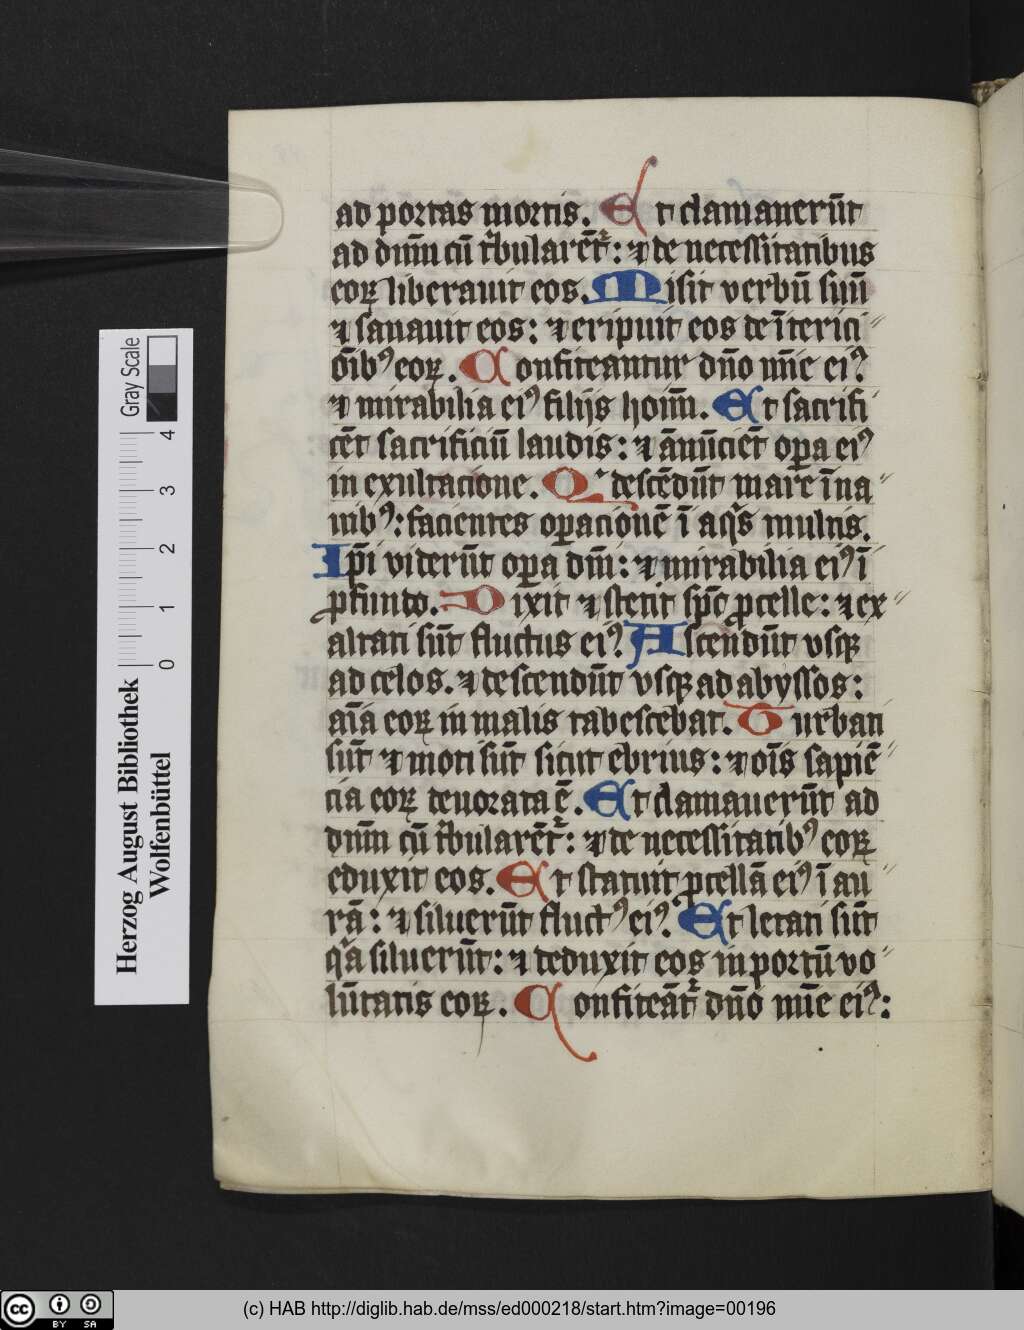 ad portas mortis. Et clamauerūt
ad dn̄m cū tͥbularēt᷑: ⁊ de necessitatibus
eoꝝ liberauit eos. Misit verbū suū
⁊ sanauit eos: ⁊ eripuit eos de īterici˝
oīb᷒ eoꝝ. Confiteantur dn̄o mīe ei᷒.
⁊ mirabilia ei᷒ filijs hoīm. Et sacrifi˝
cēt sacrificiū laudis: ⁊ ānūciēt oꝑa ei᷒
in exultacione. Qͥ descēdūt mare ī na˝
uib᷒: facientes oꝑacionē ī aqͥs multis.
Ip̄i viderūt oꝑa dn̄i: ⁊ mirabilia ei᷒ ī
ꝓfundo. Dixit ⁊ stetit sp̄c ꝓcelle: ⁊ ex˝
altati sūt fluctus ei᷒. Ascendūt vsqꝫ
ad celos. ⁊ descendūt vsqꝫ ad abyssos:
aīa eoꝝ in malis tabescebat. Turbati
sūt ⁊ moti sūt sicut ebrius: ⁊ oīs sapiē˝
cia eoꝝ deuorata ē. Et clamauerūt ad
dn̄m cū tͥbularēt᷑: ⁊ de necessitatib᷒ eoꝝ
eduxit eos. Et statuit ꝓcellā ei᷒ ī au˝
rā: ⁊ siluerūt fluct᷒ ei᷒. Et letati sūt
qͣa siluerūt: ⁊ deduxit eos in portū vo˝
lūtatis eoꝝ. Confiteāt᷑ dn̄o mīe ei᷒:
Gray Scale
4
3
2
1
0
Herzog August Bibliothek
Wolfenbüttel
cc BY SA
(c) HAB http://diglib.hab.de/mss/ed000218/start.htm?image=00196